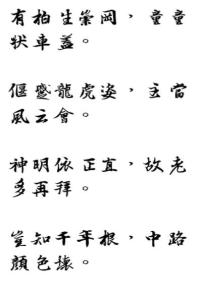 有柏生崇岡，童童
狀車蓋。
偃蹙龍虎姿，主當
風云會。
神明依正直，故老
多再拜。
豈知千年根，中路
顏色壞。